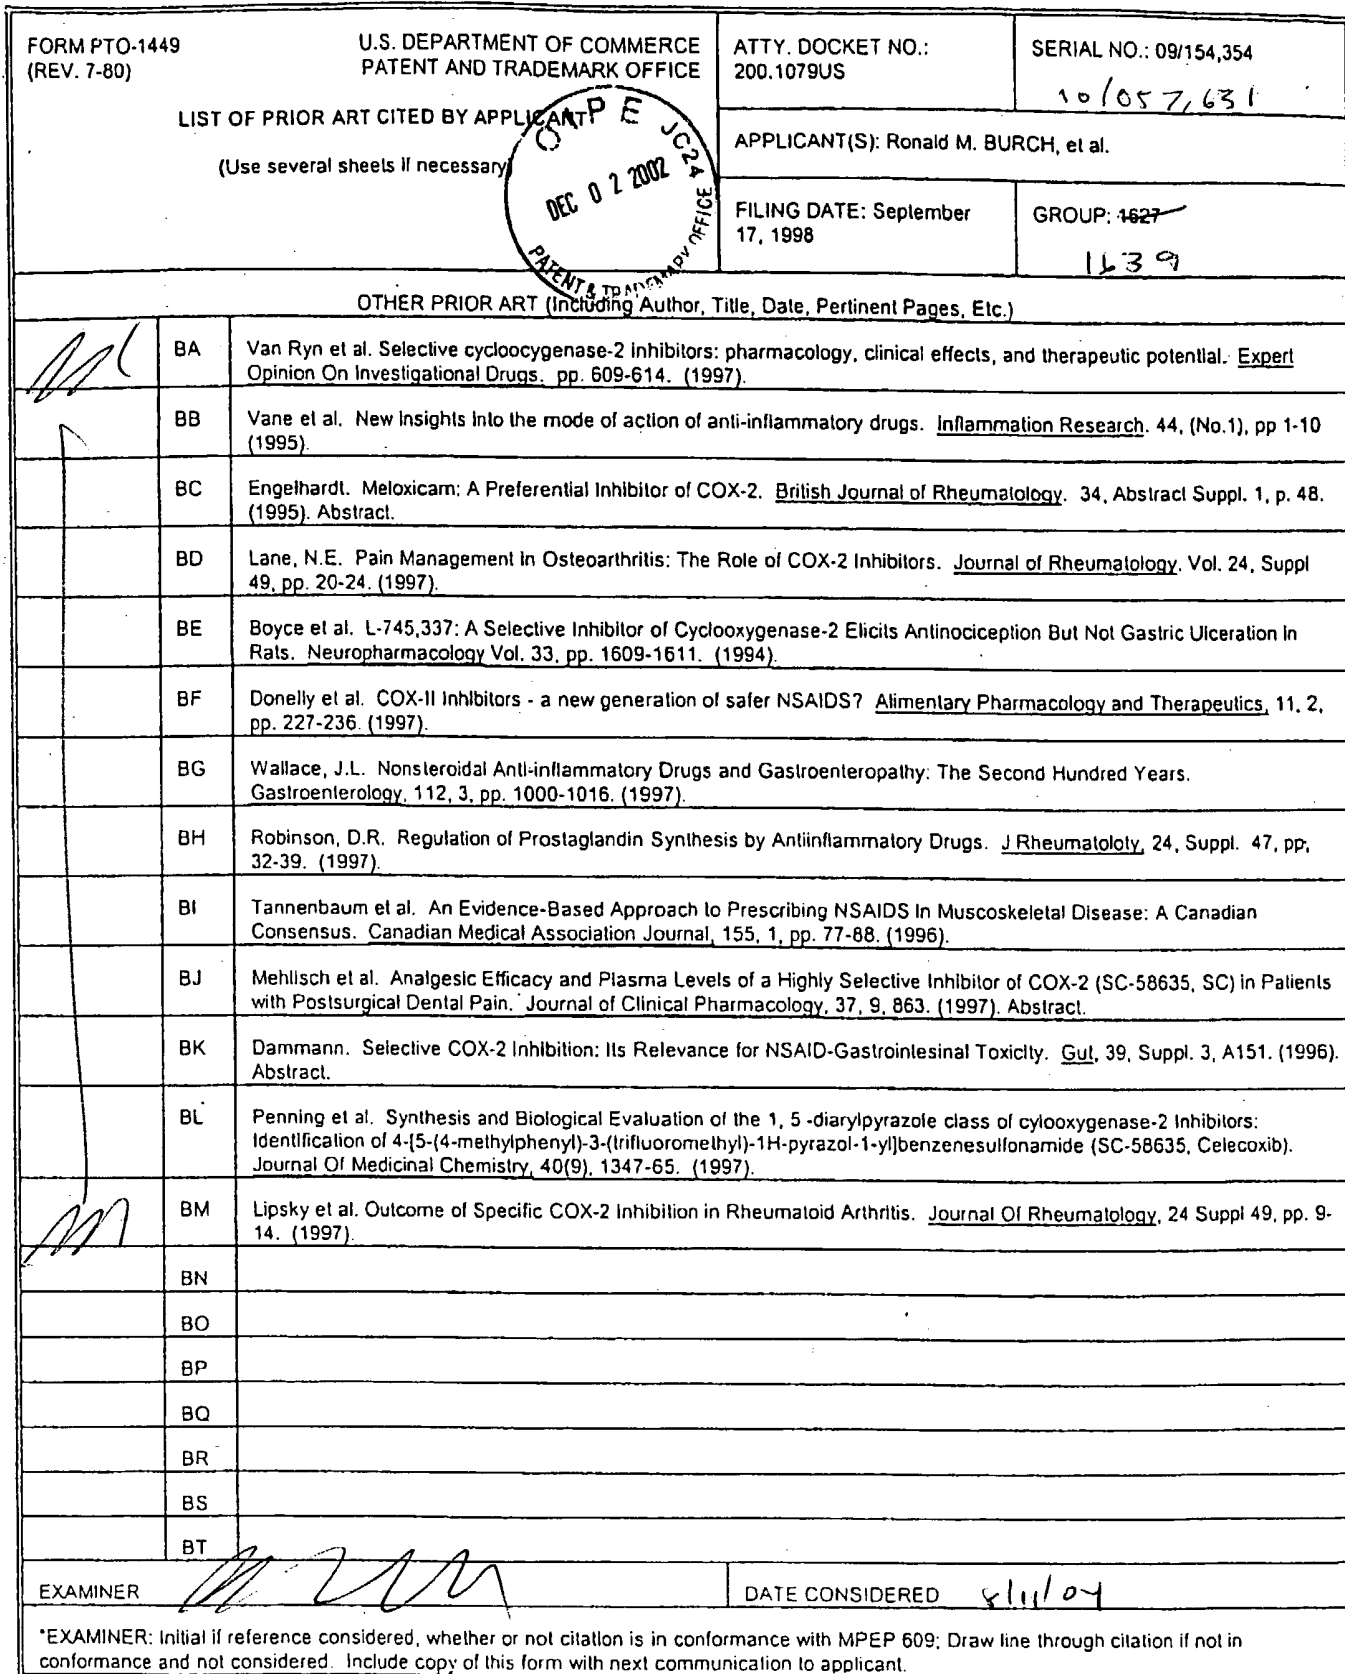 FORM PTO-1449
(REV. 7-80)
U.S. DEPARTMENT OF COMMERCE
PATENT AND TRADEMARK OFFICE
LIST OF PRIOR ART CITED BY APPLICANT
(Use several sheets if necessary)
OIPE JC24
DEC 0 2 2002
PATENT & TRADEMARK OFFICE
ATTY. DOCKET NO.:
200.1079US
SERIAL NO.: 09/154,354
10/057,631
APPLICANT(S): Ronald M. BURCH, et al.
FILING DATE: September
17, 1998
GROUP: 1627
1639
OTHER PRIOR ART (Including Author, Title, Date, Pertinent Pages, Etc.)
BA Van Ryn et al. Selective cycloocygenase-2 inhibitors: pharmacology, clinical effects, and therapeutic potential. Expert
Opinion On Investigational Drugs. pp. 609-614. (1997).
BB Vane et al. New insights into the mode of action of anti-inflammatory drugs. Inflammation Research. 44, (No.1), pp 1-10
(1995).
BC Engelhardt. Meloxicam: A Preferential Inhibitor of COX-2. British Journal of Rheumatology. 34, Abstract Suppl. 1, p. 48.
(1995). Abstract.
BD Lane, N.E. Pain Management in Osteoarthritis: The Role of COX-2 Inhibitors. Journal of Rheumatology. Vol. 24, Suppl
49, pp. 20-24. (1997).
BE Boyce et al. L-745,337: A Selective Inhibitor of Cyclooxygenase-2 Elicits Antinociception But Not Gastric Ulceration In
Rats. Neuropharmacology Vol. 33, pp. 1609-1611. (1994).
BF Donelly et al. COX-II Inhibitors - a new generation of safer NSAIDS? Alimentary Pharmacology and Therapeutics, 11, 2,
pp. 227-236. (1997).
BG Wallace, J.L. Nonsteroidal Anti-inflammatory Drugs and Gastroenteropathy: The Second Hundred Years.
Gastroenterology, 112, 3, pp. 1000-1016. (1997).
BH Robinson, D.R. Regulation of Prostaglandin Synthesis by Antiinflammatory Drugs. J Rheumatoloty, 24, Suppl. 47, pp,
32-39. (1997).
BI Tannenbaum et al. An Evidence-Based Approach to Prescribing NSAIDS In Muscoskeletal Disease: A Canadian
Consensus. Canadian Medical Association Journal, 155, 1, pp. 77-88. (1996).
BJ Mehlisch et al. Analgesic Efficacy and Plasma Levels of a Highly Selective Inhibitor of COX-2 (SC-58635, SC) in Patients
with Postsurgical Dental Pain. Journal of Clinical Pharmacology, 37, 9, 863. (1997). Abstract.
BK Dammann. Selective COX-2 Inhibition: Its Relevance for NSAID-Gastrointesinal Toxicity. Gut, 39, Suppl. 3, A151. (1996).
Abstract.
BL Penning et al. Synthesis and Biological Evaluation of the 1, 5 -diarylpyrazole class of cylooxygenase-2 Inhibitors:
Identification of 4-[5-(4-methylphenyl)-3-(trifluoromethyl)-1H-pyrazol-1-yl]benzenesulfonamide (SC-58635, Celecoxib).
Journal Of Medicinal Chemistry, 40(9), 1347-65. (1997).
BM Lipsky et al. Outcome of Specific COX-2 Inhibition in Rheumatoid Arthritis. Journal Of Rheumatology, 24 Suppl 49, pp. 9-
14. (1997).
BN
BO
BP
BQ
BR
BS
BT
EXAMINER
DATE CONSIDERED 8/11/04
*EXAMINER: Initial if reference considered, whether or not citation is in conformance with MPEP 609; Draw line through citation if not in
conformance and not considered. Include copy of this form with next communication to applicant.